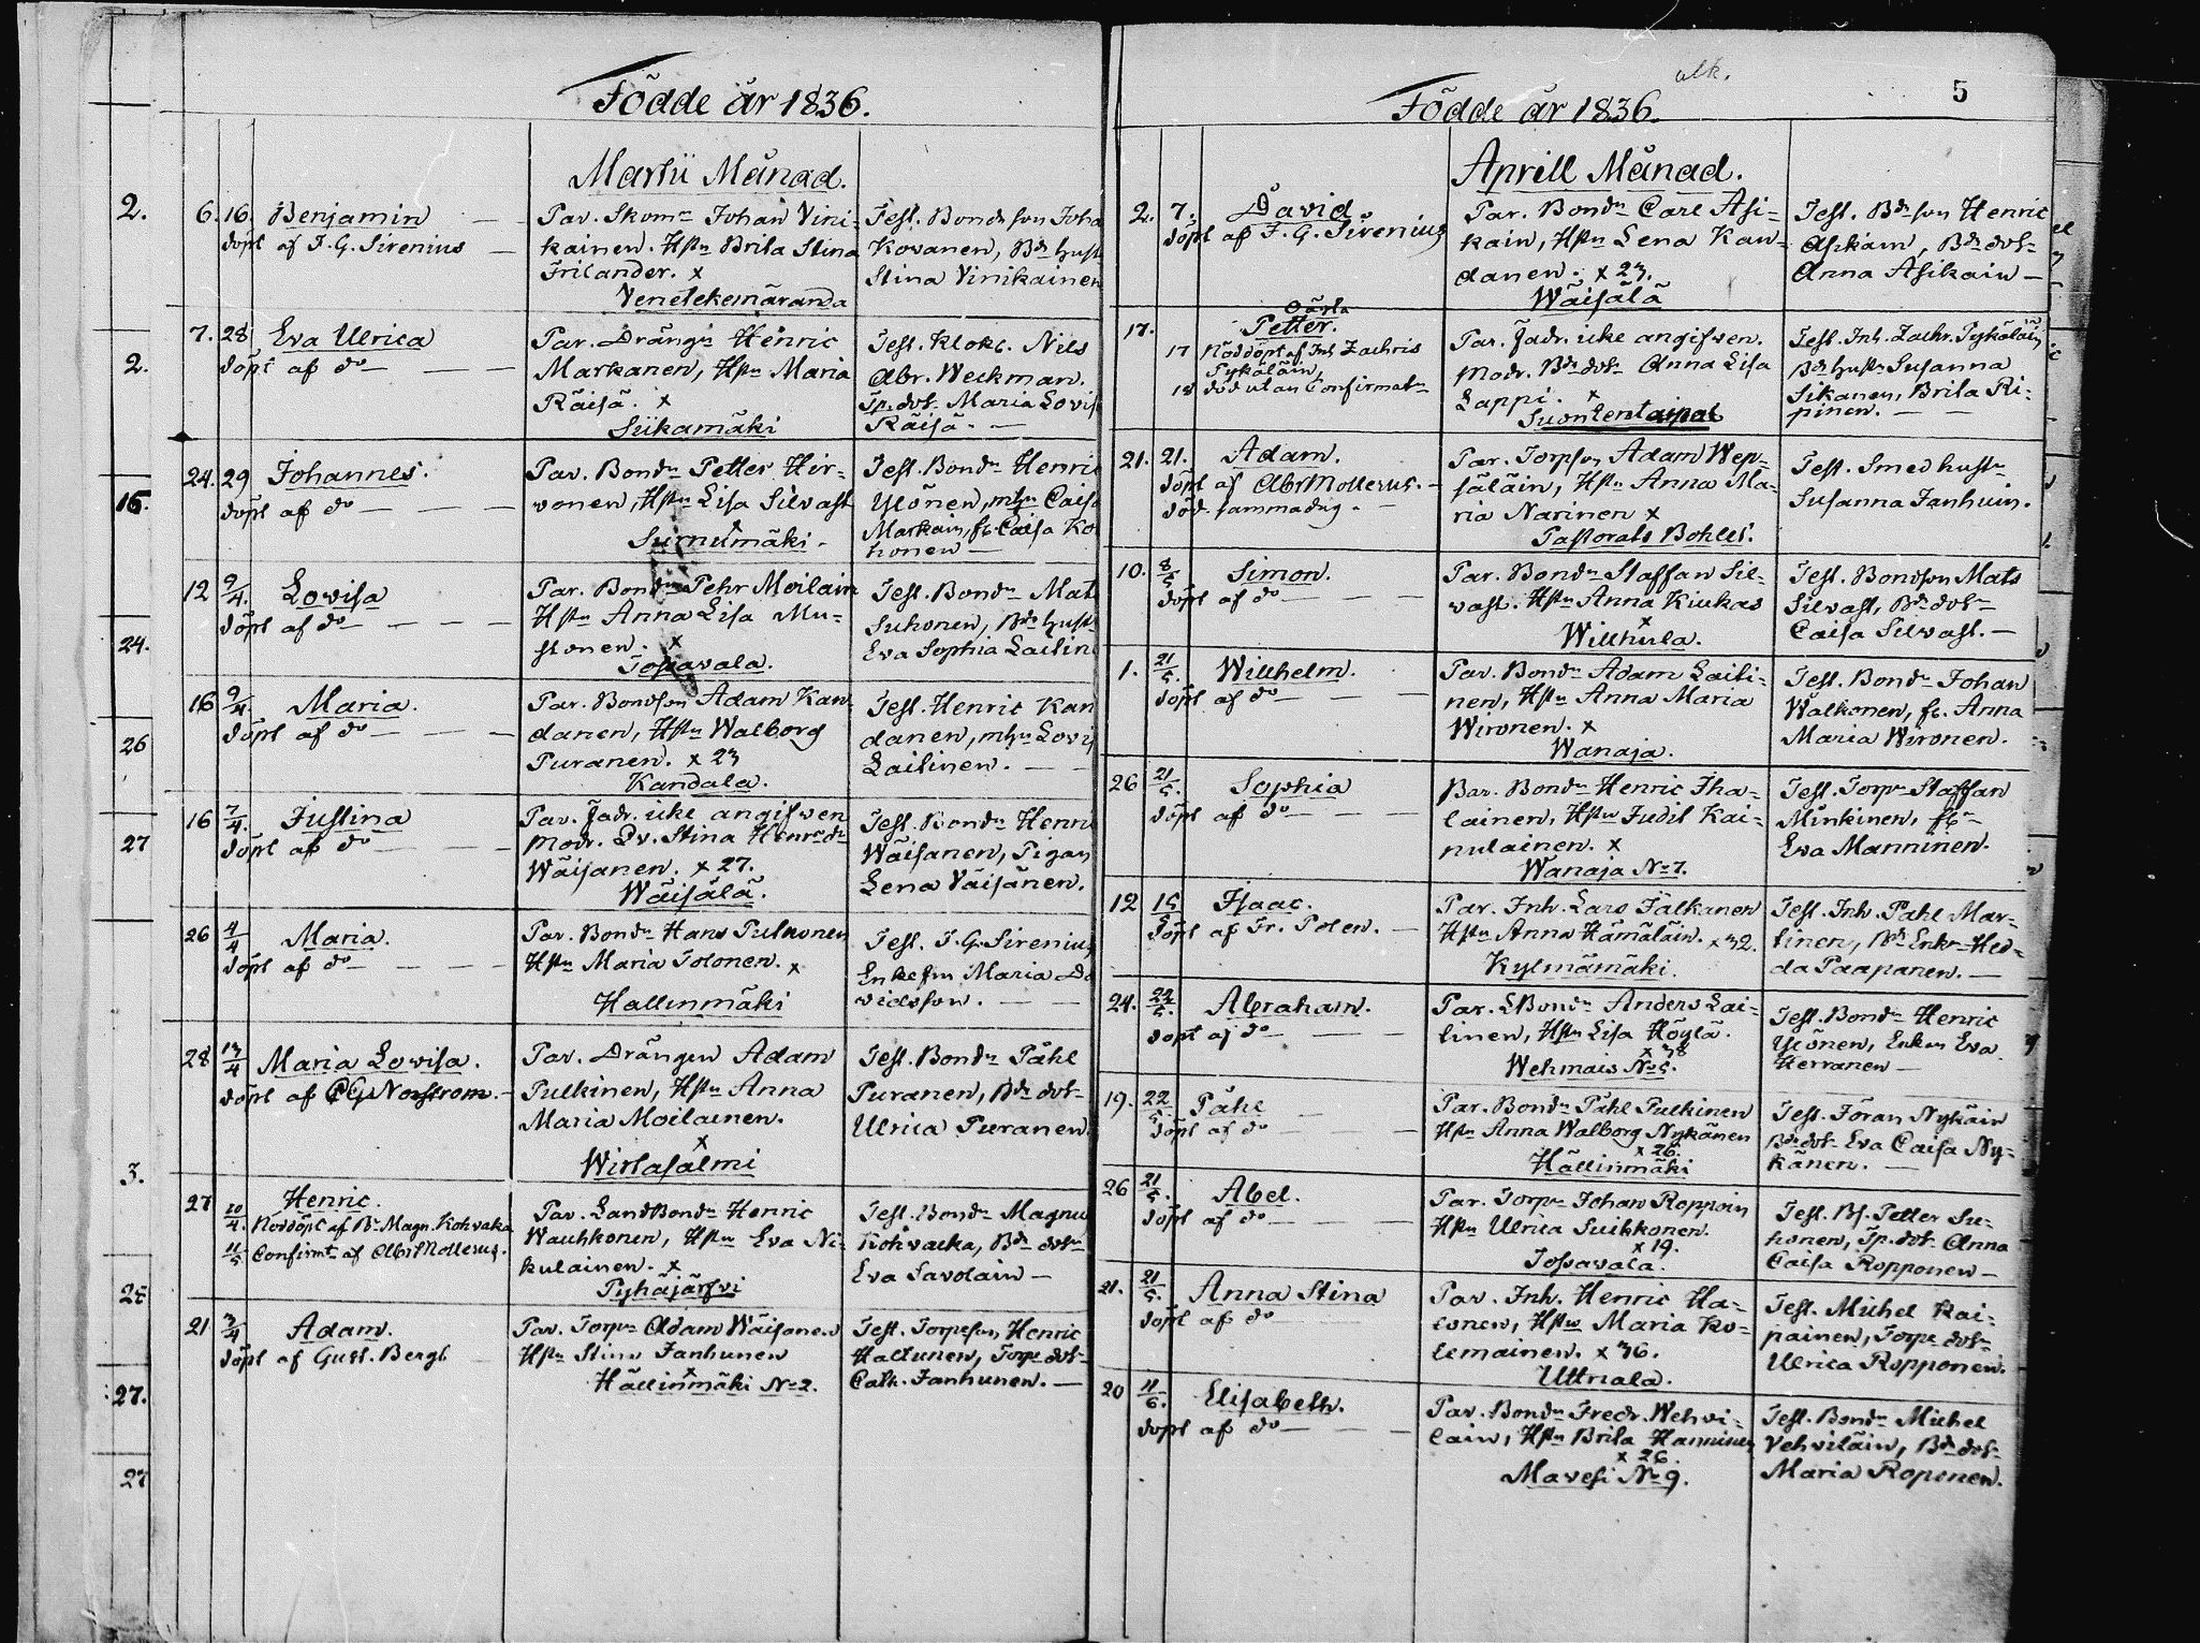 Födde år 1836.
Martii Månad.
2.
6. 16. Benjamin
döpt af J. G. Sirenius
Par. Skomr Johan Vini-
kainen. Hstn Brita Stina
Frilander. x
Venetekemäranda
Test. Bondeson Joha
Kovanen, Bd hust
Stina Vinikainen
2.
7. 28 Eva Ulrica
döpt af do
Par. Drängn Henric
Markanen, Hstn Maria
Räisä. x
Siikamäki
Test. Klock. Nils
Abr. Weckman.
Tp. dot. Maria Lovis
Räisä.
15.
24. 29 Johannes.
döpt af do
Par. Bondn Petter Hir-
vonen, Hstn Lisa Silvast
x
Surnumäki.
Test. Bondn Henric
Ulönen, mhn Caisa
Markain, fl. Caisa Ko
honen
24.
12 9/4. Lovisa
döpt af do
Par. Bondn Pehr Moilain
Hstn Anna Lisa Mu-
stonen. x
Tossavala.
Test. Bondn Mat
Suhonen, Bds hust
Eva Sophia Laitin
26
16 9/4. Maria.
döpt af do
Par. Bondson Adam Kan
danen, Hstn Walborg
Puranen. x 23
Kandala.
Test. Henric Kan
danen, mhn Lovis
Laitinen.
27
16 7/4. Justina
döpt af do
Par. Fadr. icke angifven
Modr. Qv. Stina Henrsdr
Wäisanen. x 27.
Wäisälä.
Test. Bondn Henri
Wäisanen, Pigan
Lena Väisänen.
26 4/4 Maria.
döpt af do
Par. Bondn Hans Pulkonen
Hstn Maria Tolonen. x
Hallinmäki
Test. J. G. Sirenius
Enkefru Maria Da
vidsson.
28 13/4 Maria Lovisa.
döpt af C G Norstrom.
Par. Drängen Adam
Pulkinen, Hstn Anna
Maria Moilainen.
x
Wirtasalmi
Test. Bondn Påhl
Puranen, Bds dot-
Ulrica Puranen
3.
27 Henric.
10/4. Nöddöpt af Br Magn. Kohvaka
11/5 Confirmt af Abr Mollerus.
Par. LandBondn Henric
Wauhkonen, Hstn Eva Ni-
kulainen. x
Pyhäjärfvi
Test. Bondn Magnu
Kohvacka, Bds dotr
Eva Savolain
25
21 3/4 Adam.
döpt af Gust. Bergh
Par. Torpr Adam Wäisanen
Hstn Stina Janhunen
x
Hällinmäki No 2.
Test. Torpeson Henric
Haltunen, Torpr dot-
Cath. Janhunen.
27.
27
alk.
5
Födde år 1836.
Aprill Månad.
2. 7. David
döpt af J. G. Sirenius
Par. Bondn Carl Asi-
kain, Hstn Lena Kan-
danen. x 23.
Wäisälä
Test. Bdson Henric
Asikain, Bds dot-
Anna Asikain
17. Oäkta
Petter.
17 Nöddöpt af Inh Zachris
Pykäläin,
18 död utan Confirmatn
Par. Fadr. icke angifven.
Modr. Bds dot- Anna Lisa
Lappi. x
Suontentaipal
Test. Inh. Zachr. Pykäläin
Bds hustr Susanna
Sikanen, Brita Ri-
pinen.
21. 21. Adam.
döpt af Abr Mollerus.
död. samma dag.
Par. Torpson Adam Wep-
säläin, Hstn Anna Ma-
ria Narinen x
Pastorats Bohlet.
Test. Smed hustr
Susanna Janhuin.
10. 8/5 Simon.
döpt af do
Par. Bondn Staffan Sil-
vast. Hstn Anna Kiukas
x
Willhula.
Test. Bondson Mats
Silvast, Bds dotr
Caisa Silvast.
1. 21/5. Willhelm.
döpt af do
Par. Bondn Adam Laiti-
nen, Hstn Anna Maria
Wironen. x
Wanaja.
Test. Bondn Johan
Walkonen, fl. Anna
Maria Wironen.
26 21/5. Sophia
döpt af do
Par. Bondn Henric Iha-
lainen, Hstn Judit Kai-
nulainen. x
Wanaja No 7.
Test. Torpr Staffan
Minkinen, fl-
Eva Manninen.
12 15/5 Isaac.
döpt af Fr. Polen.
Par. Inh. Lars Jälkanen
Hstn Anna Hämäläin. x 32.
Kylmämäki.
Test. Inh. Pahl Mar-
tinen, Bds Enkn Hed-
da Paapanen.
24. 22/5. Abraham.
döpt af do
Par. LBondn Anders Lai-
tinen, Hstn Lisa Höylä.
x 38
Wehmais No 5.
Test. Bondn Henric
Ulönen, Enkan Eva
Herranen
19. 22/5. Påhl
döpt af do
Par. Bondn Påhl Pulkinen
Hstn Anna Walborg Nykänen
x 26.
Hällinmäki
Test. Göran Nykäin
Bds dot- Eva Caisa Ny-
känen.
26 21/5. Abel.
döpt af do
Par. Torpr Johan Roppoin
Hstn Ulrica Suikkonen.
x 19.
Tossavala.
Test. Bs. Petter Su-
honen, Tp. dot- Anna
Caisa Ropponen
21. 21/5. Anna Stina
döpt af do
Par. Inh. Henric Ha-
lonen, Hstn Maria Ko-
lemainen. x 36.
Uttriala.
Test. Michel Kai-
painen, Torpr dot-
Ulrica Ropponen.
20 11/6. Elisabeth.
döpt af do
Par. Bondn Fredr. Wehvi-
lain, Hstn Brita Hanninen
x 26.
Mavesi No 9.
Test. Bondn Michel
Vehviläin, Bds dot-
Maria Roponen.